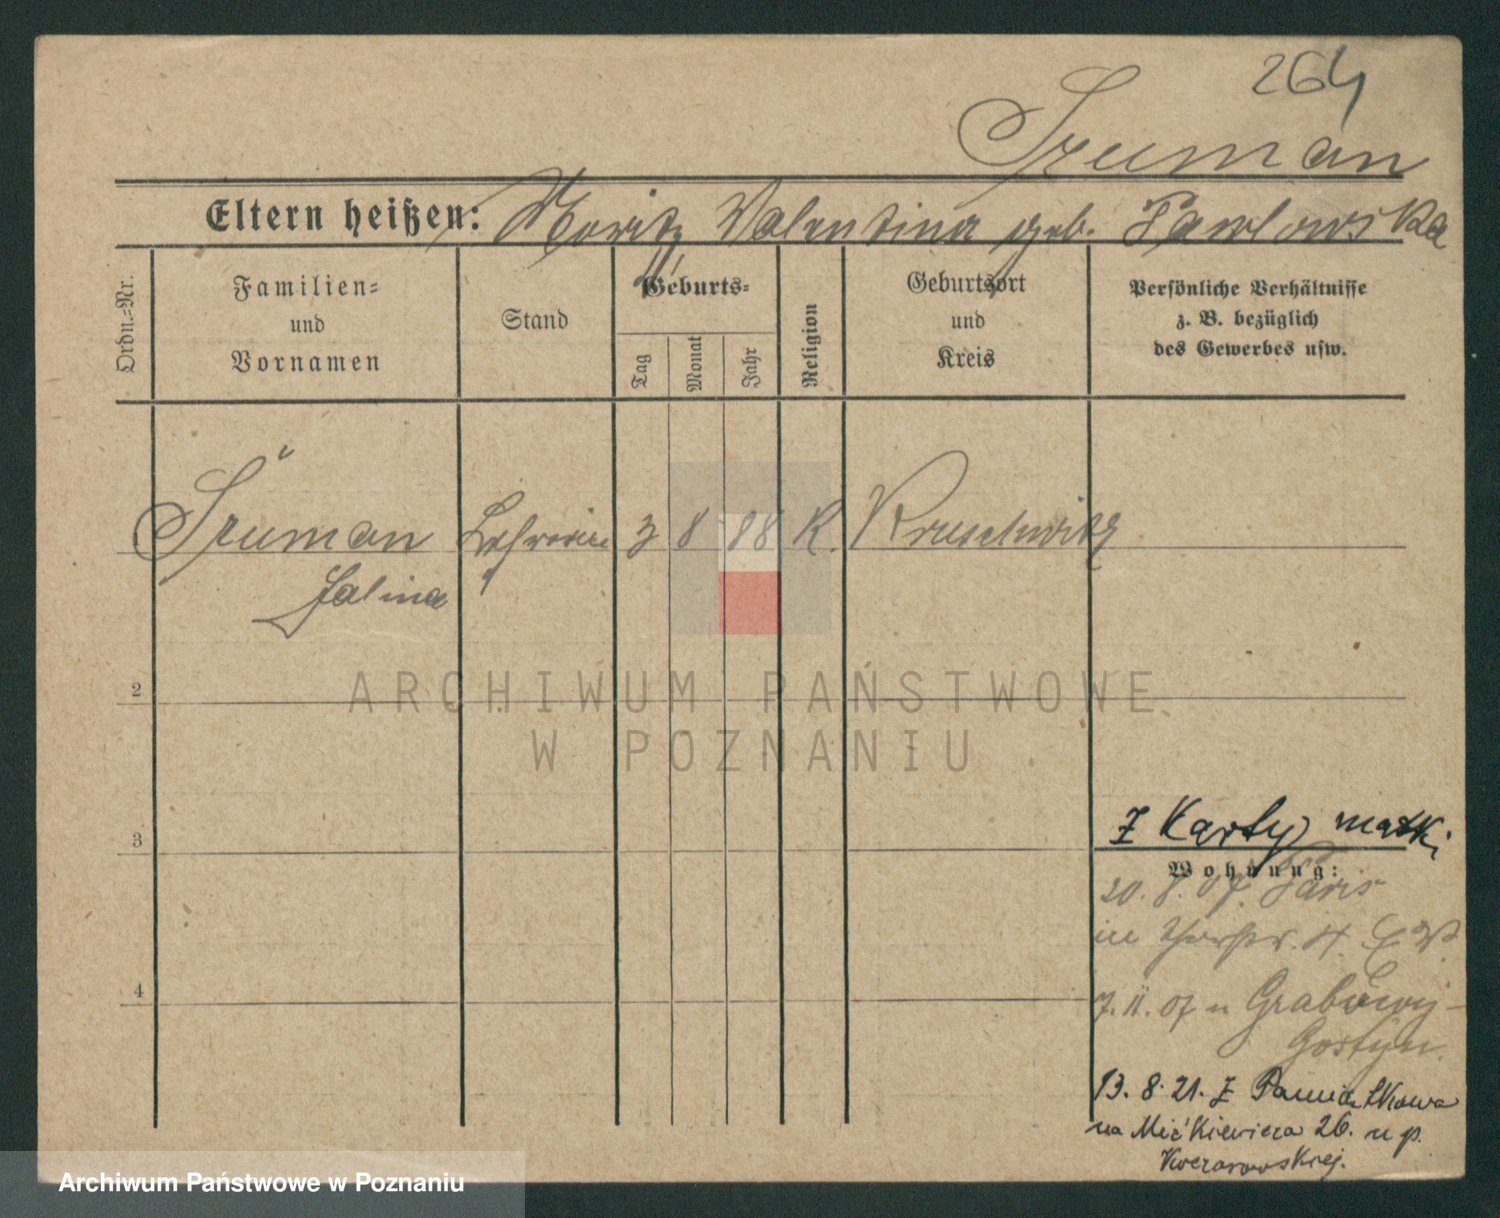 264
Szuman
Eltern heißen: Moritz Valentina geb. Pawlowska
Ordn.=Nr.
Familien=
und
Vornamen
Stand
Geburts=
Tag
Monat
Jahr
Religion
Geburtsort
und
Kreis
Persönliche Verhältnisse
z. B. bezüglich
des Gewerbes usw.
Szuman Lehrerin 3 8 88 K. Kruschwitz
Halina
2
3
4
Z Karty matki
Wohnung:
20. 8. 07. Paris
in
7. 11. 07 n
Gostyn.
13. 8. 21. Z
na Mićkiewicza 26. u p.
ARCHIWUM PAŃSTWOWE
W POZNANIU
Archiwum Państwowe w Poznaniu